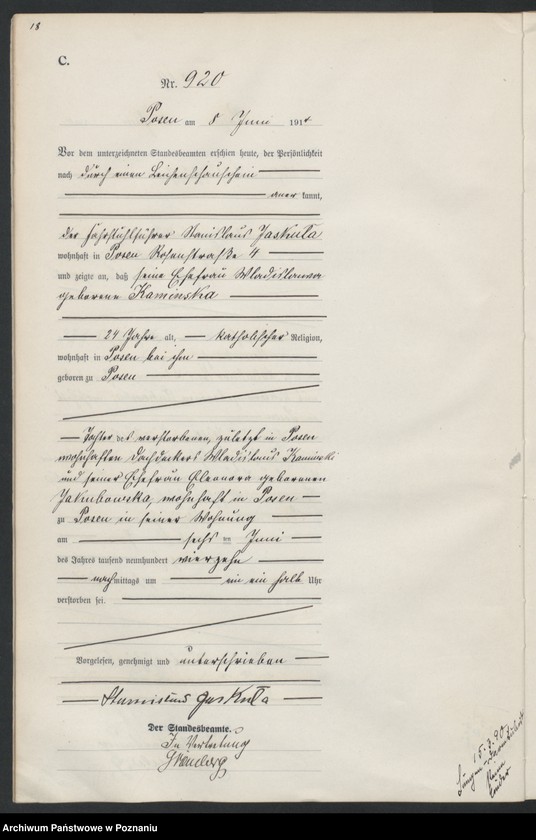 18
C.
Nr. 920
Posen am 8 Juni 1914
Vor dem unterzeichneten Standesbeamten erschien heute, der Persönlichkeit
nach durch einen Leichenschauschein
aner kannt,
der Fahrstuhlführer Stanislaus Jaskuła
wohnhaft in Posen Rosenstraße 4
und zeigte an, daß seine Ehefrau Wladislawa
geborene Kaminska
24 Jahre alt, katholischer Religion,
wohnhaft in Posen bei ihm
geboren zu Posen
Tochter des verstorbenen, zuletzt in Posen
wohnhaften Dachdeckers Wladislaus Kaminski
und seiner Ehefrau Eleonora geborenen
Jakubowska, wohnhaft in Posen
zu Posen in seiner Wohnung
am sechs ten Juni
des Jahres tausend neunhundert vierzehn
nachmittags um ein halb Uhr
verstorben sei.
Vorgelesen, genehmigt und unterschrieben
Stanislaus Jaskuła
Der Standesbeamte.
In Vertretung
15.3.90
Archiwum Państwowe w Poznaniu